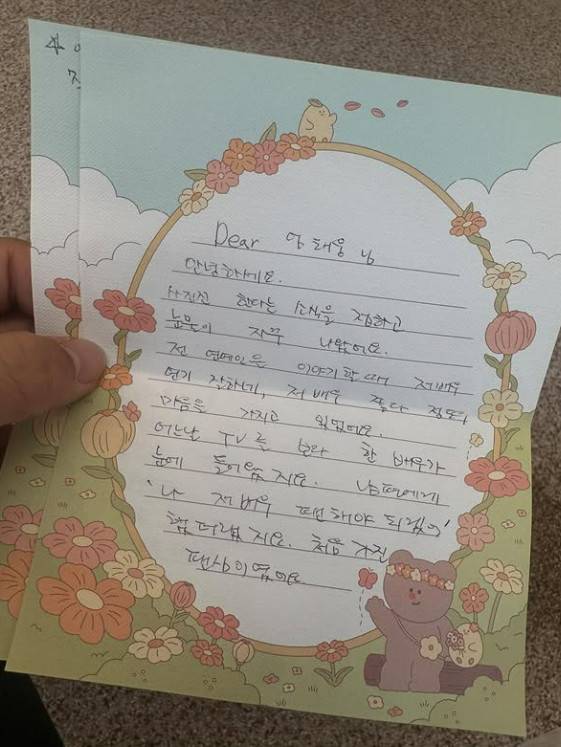 Dear 양태웅 님
안녕하세요.
사진전 한다는 소식을 접하고
눈물이 자꾸 나왔어요.
전 연예인은 이야기할때 저배우
연기 잘하네, 저 배우 잘한다 정도의
마음을 가지고 있었어요.
어느날 TV를 보다 한 배우가
눈에 들어왔지요. 남편에게
'나 저 배우 팬해야 되겠어'
했더랬지요. 처음 가진
팬심이였어요